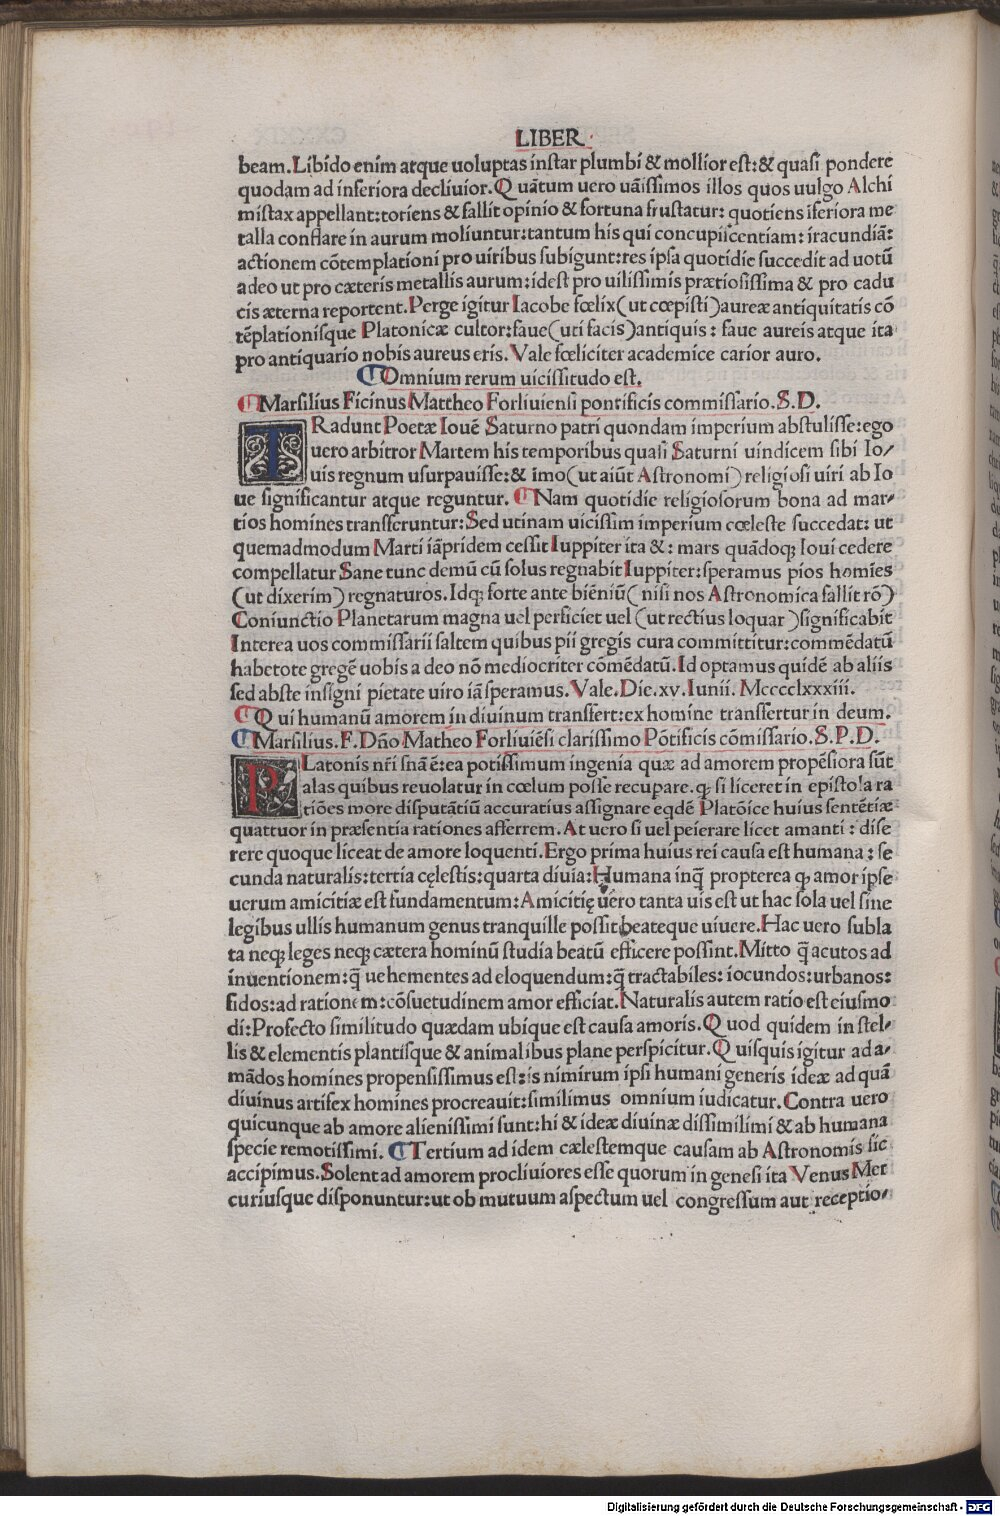 LIBER
beam.Libido enim atque uoluptas instar plumbi & mollior est:& quasi pondere
quodam ad inferiora decliuior.Quãtum uero uãissimos illos quos uulgo Alchi
mistax appellant:toriens & fallit opinio & fortuna frustatur: quotiens ĩferiora me
talla conflare in aurum moliuntur:tantum his qui concupiscentiam: iracundiã:
actionem cõtemplationi pro uiribus subigunt:res ipsa quotidie succedit ad uotũ
adeo ut pro cæteris metallis aurum:idest pro uilissimis prætiosissima & pro cadu
cis æterna reportent.Perge igitur Iacobe fœlix(ut cœpisti)aureæ antiquitatis cõ
tẽplationisque Platonicæ cultor:faue(uti facis)antiquis: faue aureis atque ita
pro antiquario nobis aureus eris. Vale fœliciter academice carior auro.
Omnium rerum uicissitudo est.
Marsilius Ficinus Mattheo Forliuiensi pontificis commissario.S.D.
TRadunt Poetæ Iouẽ Saturno patri quondam imperium abstulisse:ego
uero arbitror Martem his temporibus quasi Saturni uindicem sibi Io/
uis regnum usurpauisse:& imo(ut aiũt Astronomi)religiosi uiri ab Io
ue significantur atque reguntur. Nam quotidie religiosorum bona ad mar/
tios homines transferuntur:Sed utinam uicissim imperium cœleste succedat: ut
quemadmodum Marti iãpridem cessit Iuppiter ita &: mars quãdoq; Ioui cedere
compellatur Sane tunc demũ cũ solus regnabit Iuppiter:speramus pios homĩes
(ut dixerim)regnaturos.Idq; forte ante biẽniũ( nisi nos Astronomica fallit rõ)
Coniunctio Planetarum magna uel perficiet uel (ut rectius loquar )significabit
Interea uos commissarii saltem quibus pii gregis cura committitur:commẽdatũ
habetote gregẽ uobis a deo nõ mediocriter cõmẽdatũ.Id optamus quidẽ ab aliis
sed abste insigni pietate uiro iã speramus.Vale.Die.xv.Iunii. Mcccclxxxiii.
Qui humanũ amorem in diuinum transfert:ex homine transfertur in deum.
Marsilius.F.Dño Matheo Forliuiẽsi clarissimo Põtificis cõmissario.S.P.D.
PLatonis nřĩ snã ẽ:ea potissimum ingenia quæ ad amorem propẽsiora sũt
alas quibus reuolatur in cœlum posse recupare.q; si liceret in epistola ra
tiões more disputãtiũ accuratius assignare eqdẽ Platõice huius sentẽtiæ
quattuor in præsentia rationes afferrem.At uero si uel peierare licet amanti : dise
rere quoque liceat de amore loquenti.Ergo prima huius rei causa est humana : se
cunda naturalis:tertia cęlestis:quarta diuia:Humana inq̃ propterea q; amor ipse
uerum amicitiæ est fundamentum:Amicitię uero tanta uis est ut hac sola uel sine
legibus ullis humanum genus tranquille possit beateque uiuere.Hac uero subla
ta neq; leges neq; cætera hominũ studia beatũ efficere possint.Mitto q̃ acutos ad
inuentionem:q̃ uehementes ad eloquendum:q̃ tractabiles: iocundos:urbanos:
fidos:ad rationem:cõsuetudinem amor efficiat.Naturalis autem ratio est eiusmo
di:Profecto similitudo quædam ubique est causa amoris.Quod quidem in stel/
lis & elementis plantisque & animalibus plane perspicitur.Quisquis igitur ad a/
mãdos homines propensissimus est:is nimirum ipsi humani generis ideæ ad quã
diuinus artifex homines procreauit:similimus omnium iudicatur.Contra uero
quicunque ab amore alienissimi sunt:hi & ideæ diuinæ dissimilimi & ab humana
specie remotissimi. Tertium ad idem cælestemque causam ab Astronomis sic
accipimus.Solent ad amorem procliuiores esse quorum in genesi ita Venus Mer
curiusque disponuntur:ut ob mutuum aspectum uel congressum aut receptio/
Digitalisierung gefördert durch die Deutsche Forschungsgemeinschaft - DFG